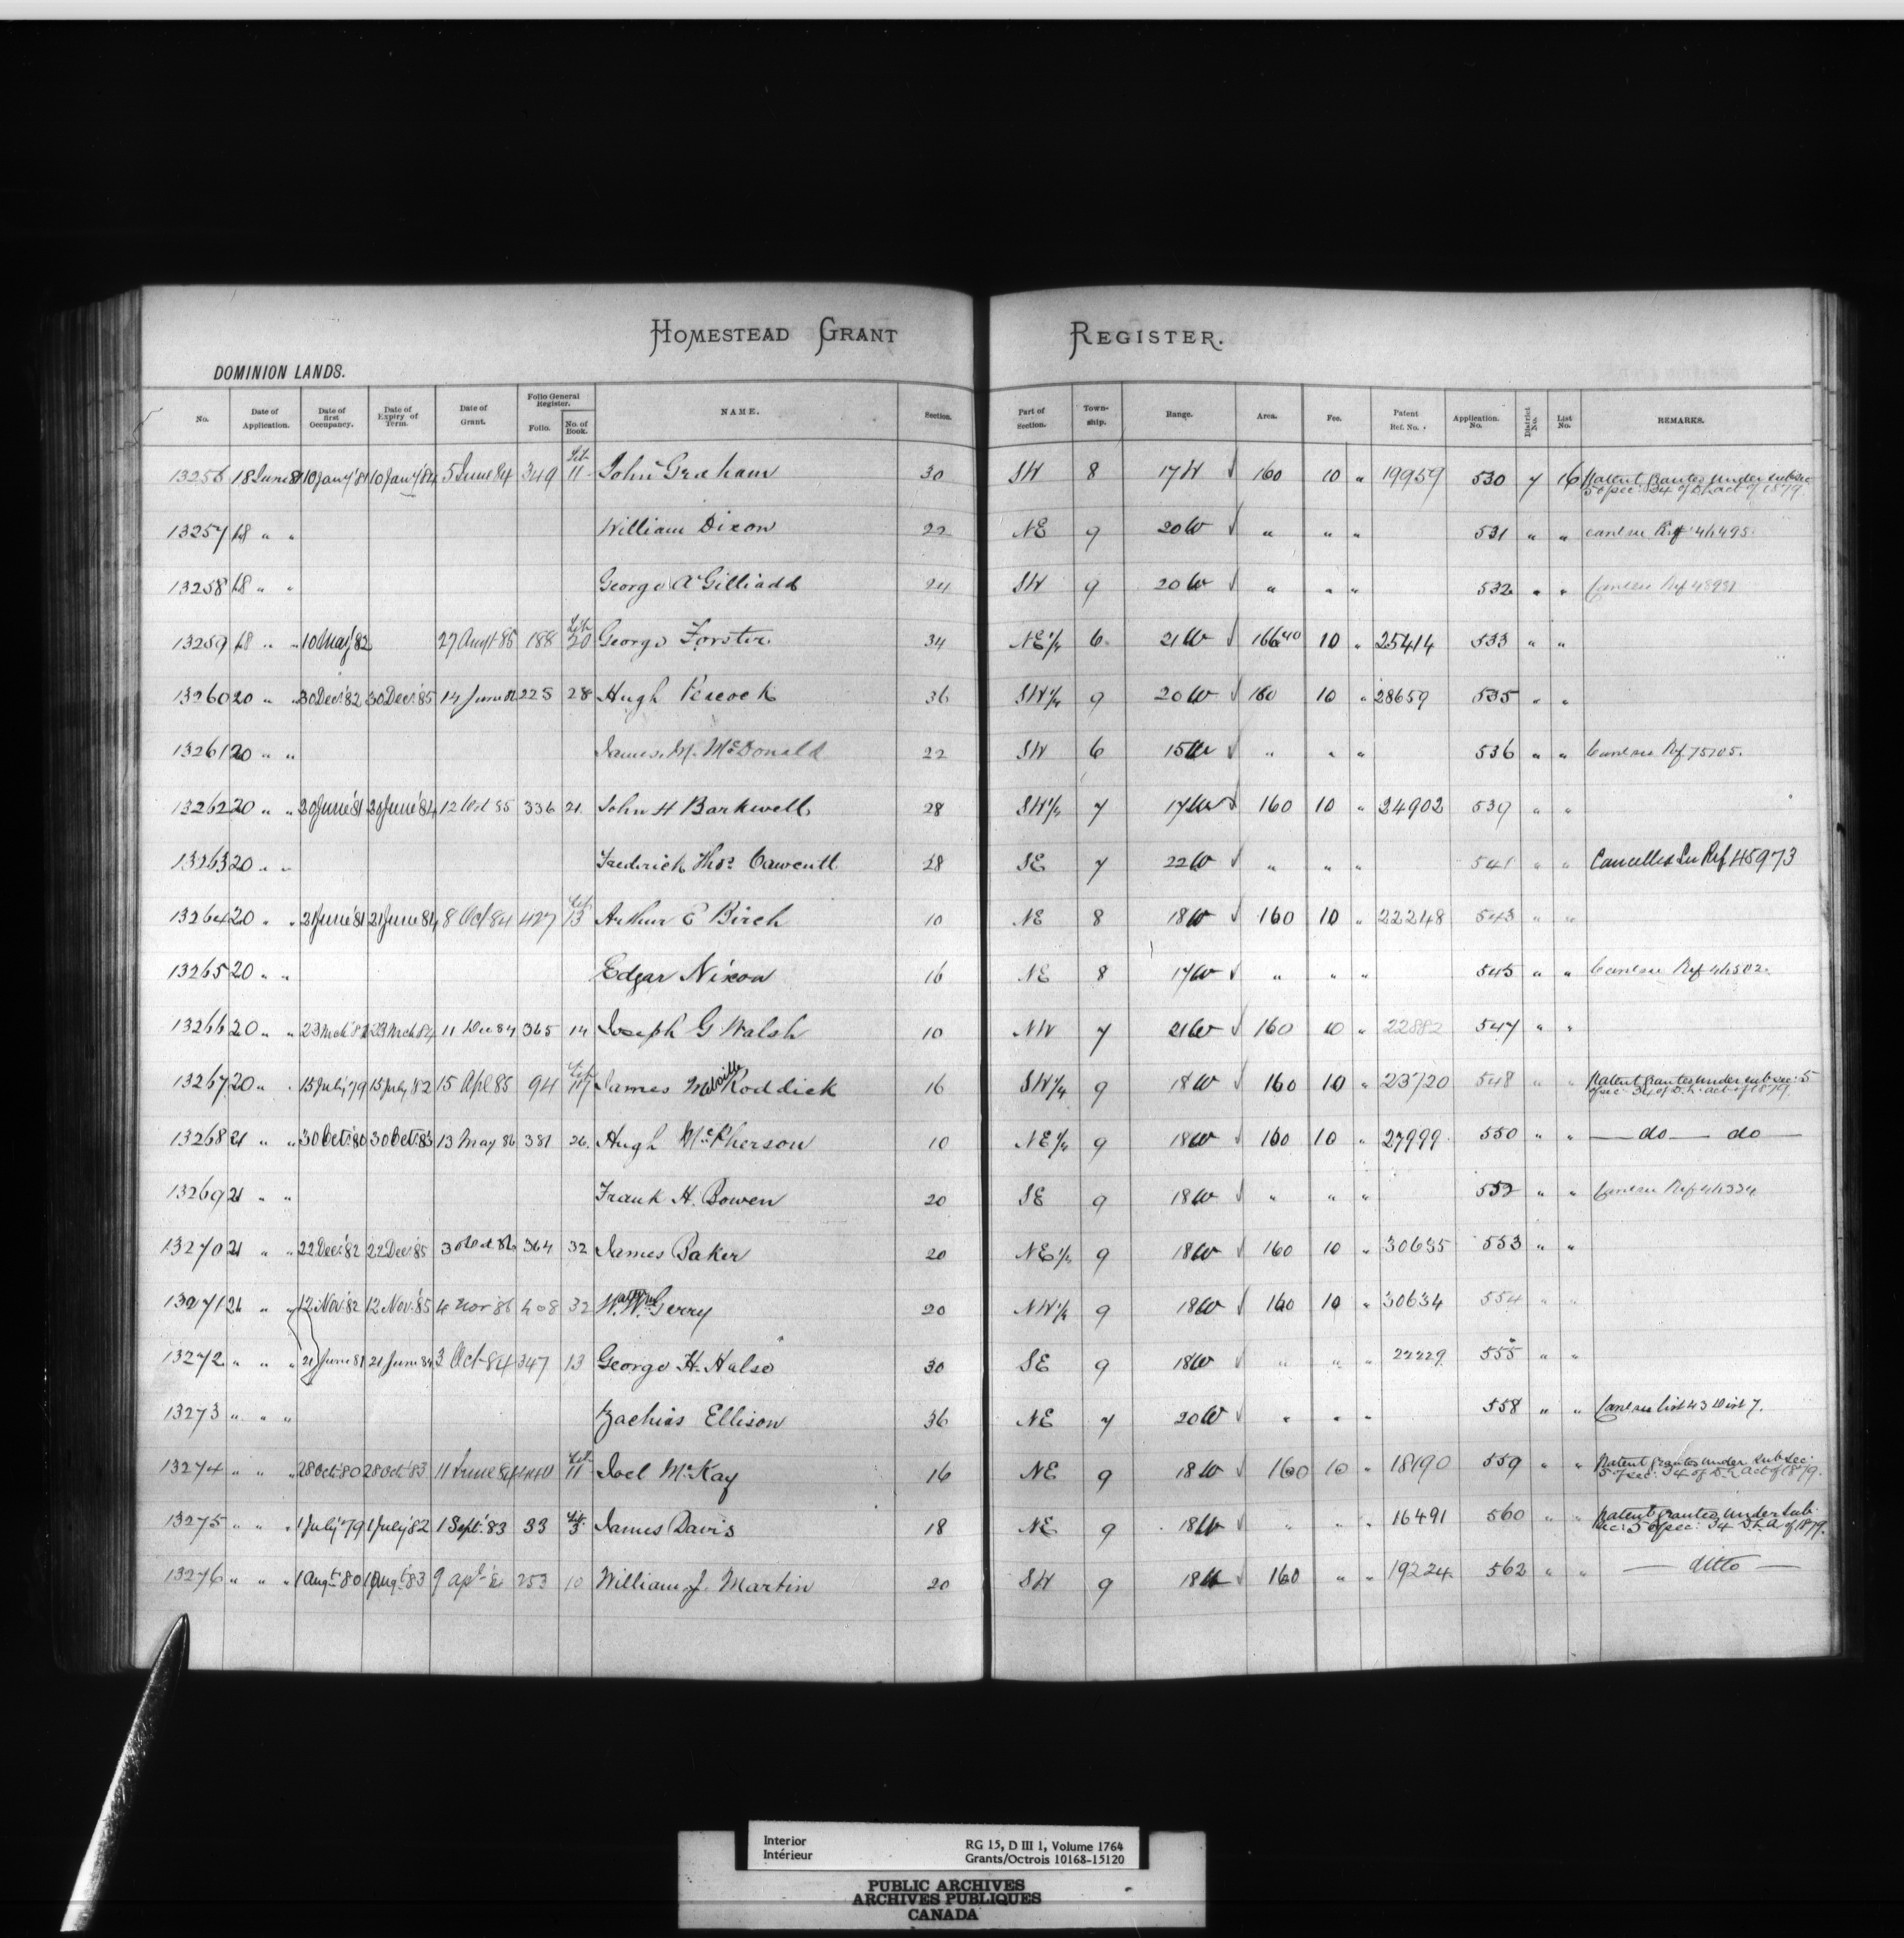 HOMESTEAD GRANT REGISTER.
DOMINION LANDS.
No. Date of Application. Date of first Occupancy. Date of Expiry of Term. Date of Grant. Folio General Register. Folio. No. of Book. NAME. Section. Part of Section. Town-ship. Range. Area. Fee. Patent Ref. No. Application No. District No. List No. REMARKS.
13256 18 June 81 10 Jany '81 10 Jany '84 5 June 84 349 11 John Graham 30 SW 8 17 W 160 10 " 19959 530 7 16 Patent Granted under subsec 5 of sec: 34 of D.L. act of 1879
13257 18 " " William Dixon 22 NE 9 20 W " " " 531 " " Ref 46495
13258 18 " " George A Gilliadd 24 SW 9 20 W " " " 532 " "
13259 18 " " 10 May '82 27 Augt 85 188 20 George Forster 34 NE 1/4 6 21 W 166 40 10 " 25414 533 " "
13260 20 " " 30 Dec: '82 30 Dec: '85 14 June 86 225 28 Hugh Peacock 36 SW 1/4 9 20 W 160 10 " 28659 535 " "
13261 20 " " James. M. McDonald 22 SW 6 15 W " " " 536 " " Ref 75105.
13262 20 " " 20 June '81 20 June '84 12 Oct 85 336 21 John H Barkwell 28 SW 1/4 7 17 W 160 10 " 24902 539 " "
13263 20 " " Frederick Thos. 28 SE 7 22 W " " " 541 " " Cancelled See Ref 45973
13264 20 " " 21 June '81 21 June '84 8 Oct 84 427 13 Arthur E Birch 10 NE 8 18 W 160 10 " 22248 543 " "
13265 20 " " Edgar Nixon 16 NE 8 17 W " " " 545 " " Ref 46502.
13266 20 " " 23 Mch '81 23 Mch 84 11 Dec 84 365 14 Joseph G Walsh 10 NW 7 21 W 160 10 " 22882 547 " "
13267 20 " " 15 July '79 15 July 82 15 Apl 85 94 17 James Melville Roddick 16 SW 1/4 9 18 W 160 10 " 23720 548 " " Patent granted under subsec: 5 of sec 34 of D.L. act of 1879.
13268 21 " " 30 Oct: '80 30 Oct: 83 13 May 86 381 26 Hugh McPherson 10 NE 1/4 9 18 W 160 10 " 27999 550 " " — do — do —
13269 21 " " Frank H. Bowen 20 SE 9 18 W " " " 552 " "
13270 21 " " 22 Dec: '82 22 Dec: '85 30 Oct 86 364 32 James Baker 20 NE 1/4 9 18 W 160 10 " 30635 553 " "
13271 21 " " 12 Nov: '82 12 Nov: '85 4 Nov '86 408 32 W. Gerry 20 NW 1/4 9 18 W 160 10 " 30634 554 " "
13272 " " " 21 June 81 21 June 84 3 Oct 84 347 13 George H. Halse 30 SE 9 18 W " " " 22229 555 " "
13273 " " " Zachias Ellison 36 NE 7 20 W " " " 558 " " list 43 Dist 7.
13274 " " " 28 Oct: 80 28 Oct: 83 11 June 84 440 11 Joel McKay 16 NE 9 18 W 160 10 " 18190 559 " " Patent granted under subsec: 5 of sec: 34 of D.L. Act of 1879.
13275 " " " 1 July '79 1 July '82 1 Sept: '83 33 3 James Davis 18 NE 9 18 W " " " 16491 560 " " Patent granted under Sub sec: 5 of sec: 34 D.L.A. of 1879.
13276 " " " 1 Augt: 80 1 Augt: 83 9 Apl 253 10 William J. Martin 20 SW 9 18 W 160 " " 19224 562 " " — ditto —
Interior
Intérieur
RG 15, D III 1, Volume 1764
Grants/Octrois 10168-15120
PUBLIC ARCHIVES
ARCHIVES PUBLIQUES
CANADA